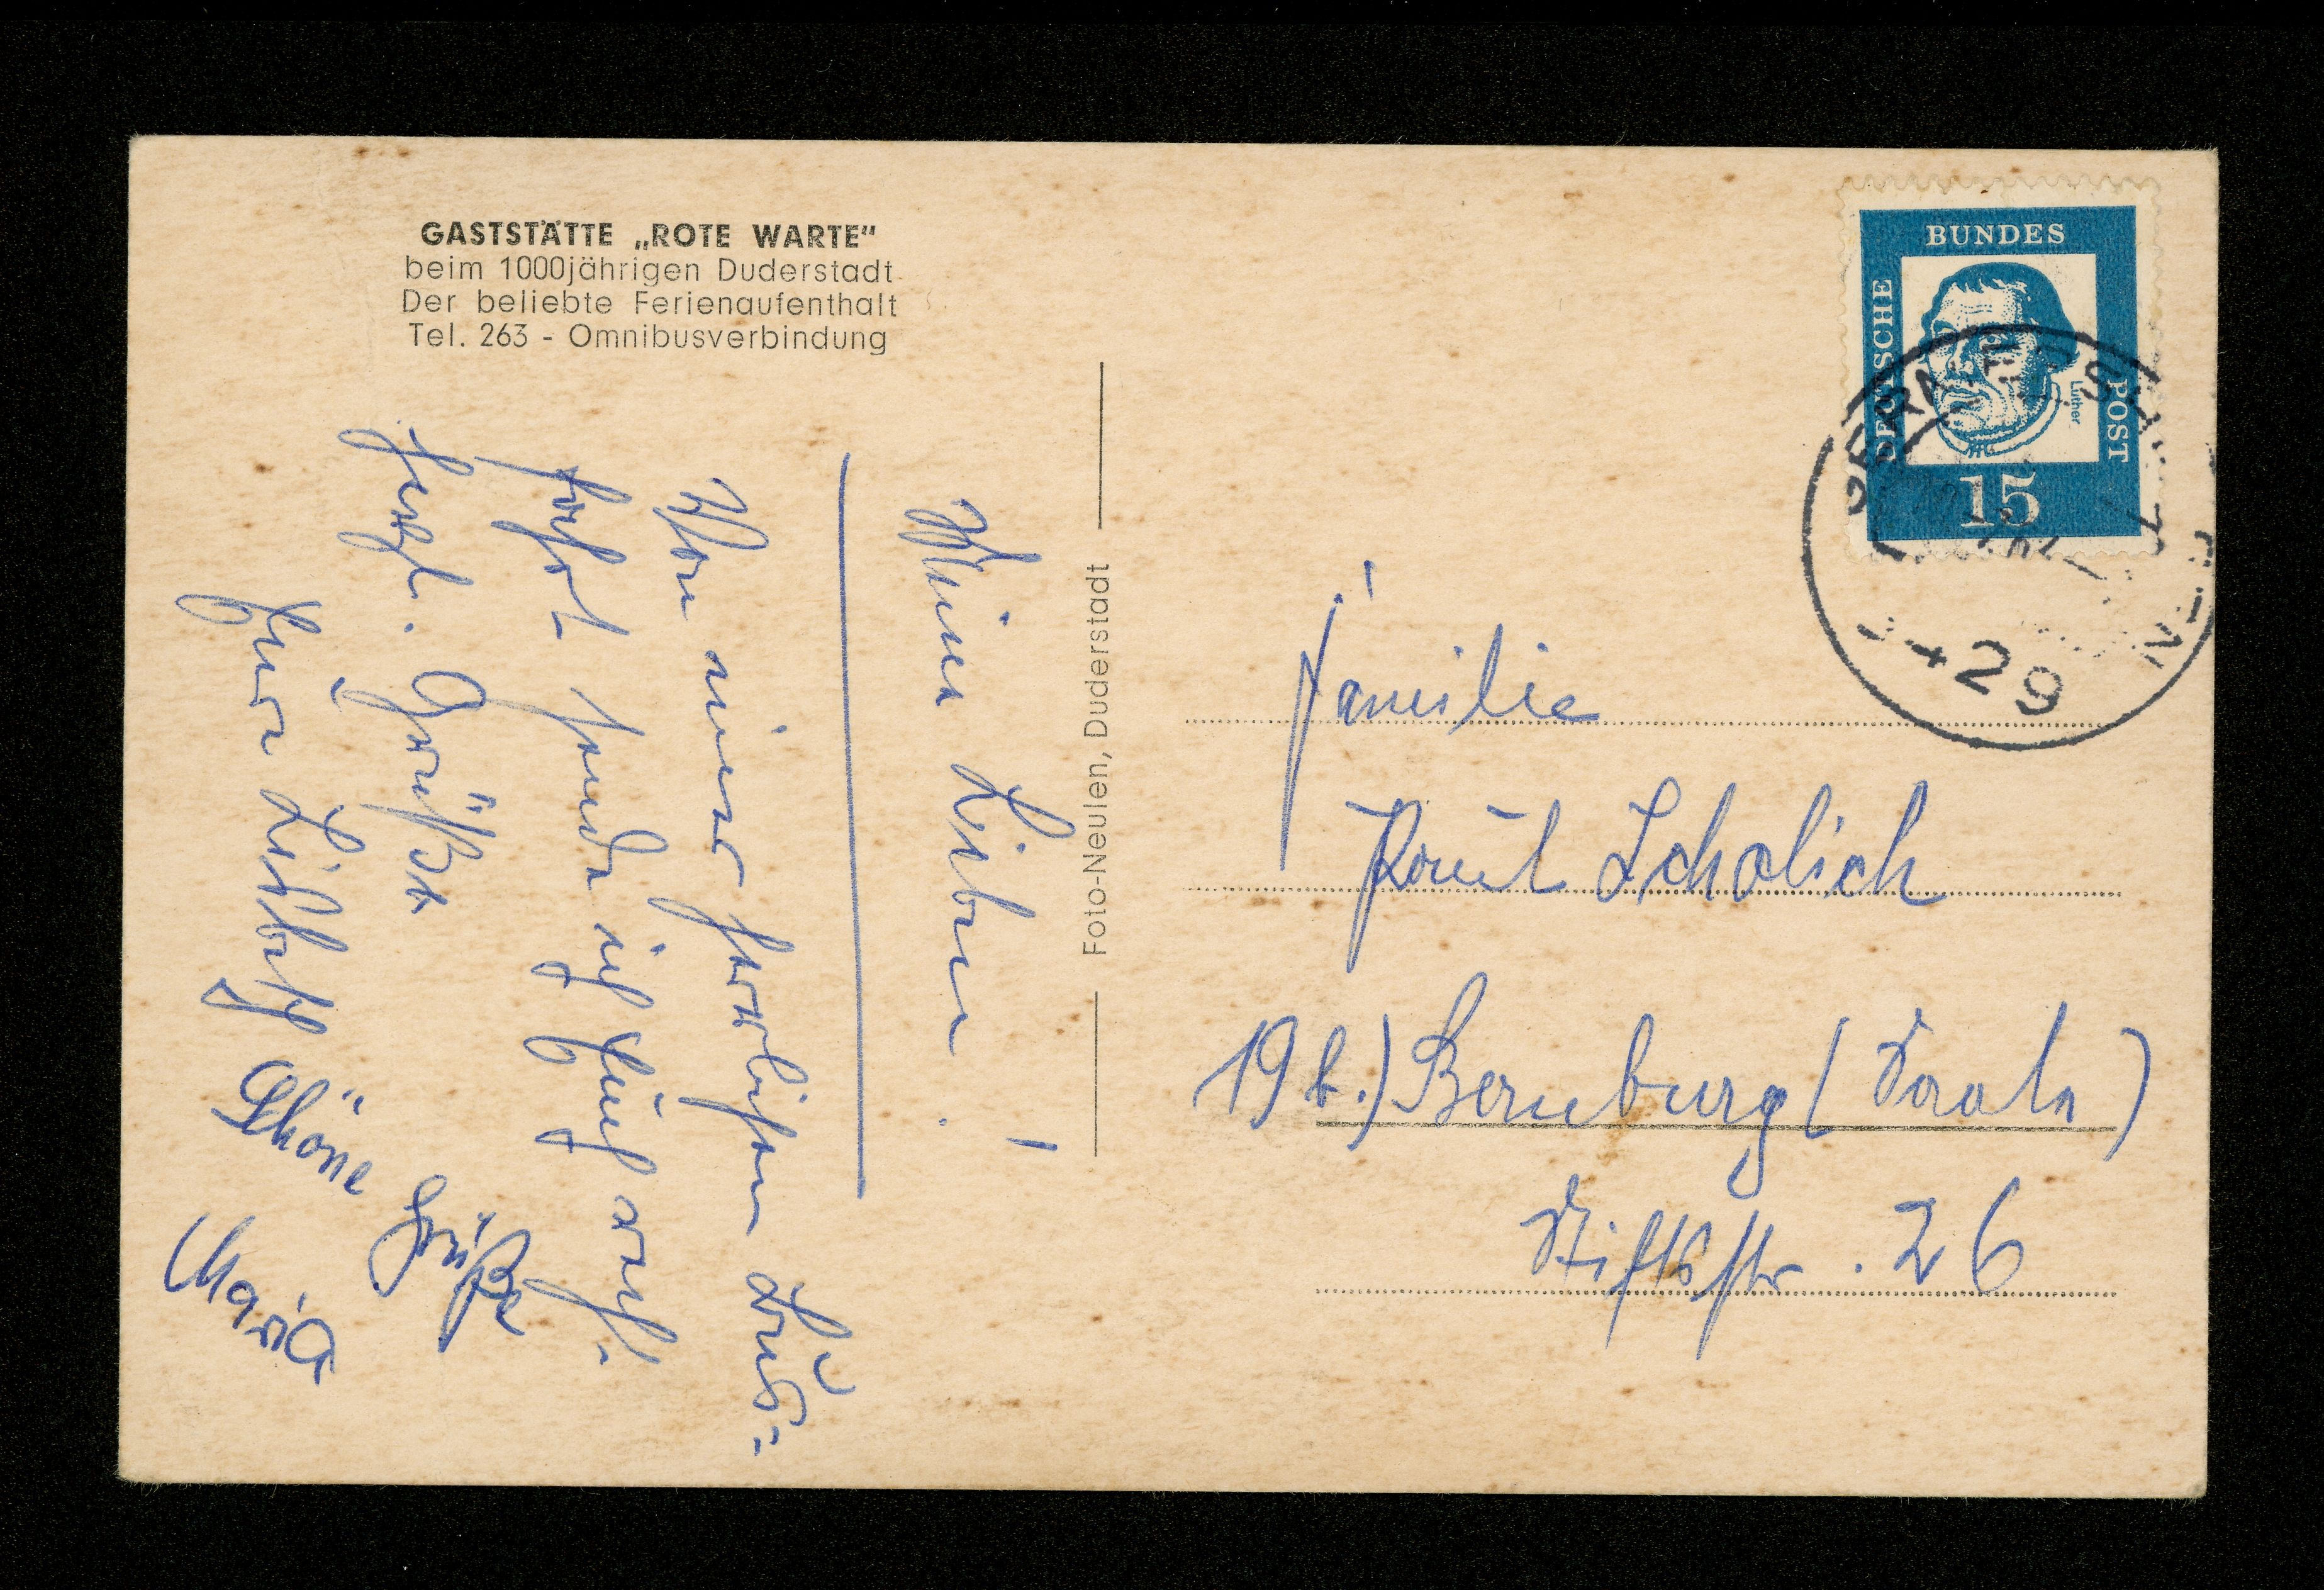 GASTSTÄTTE „ROTE WARTE"
beim 1000jährigen Duderstadt
Der beliebte Ferienaufenthalt
Tel. 263 - Omnibusverbindung
Meine Lieben!
Von einer herrlichen Aus-
fahrt sende ich Euch recht
herzl. Grüße
Eure Liesbeth
Schöne Grüße
Maria
Foto-Neulen, Duderstadt
DEUTSCHE
BUNDES
POST
Luther
15
29
Familie
Paul Scholich
19b.) Bernburg (Saale)
Stiftsstr. 26